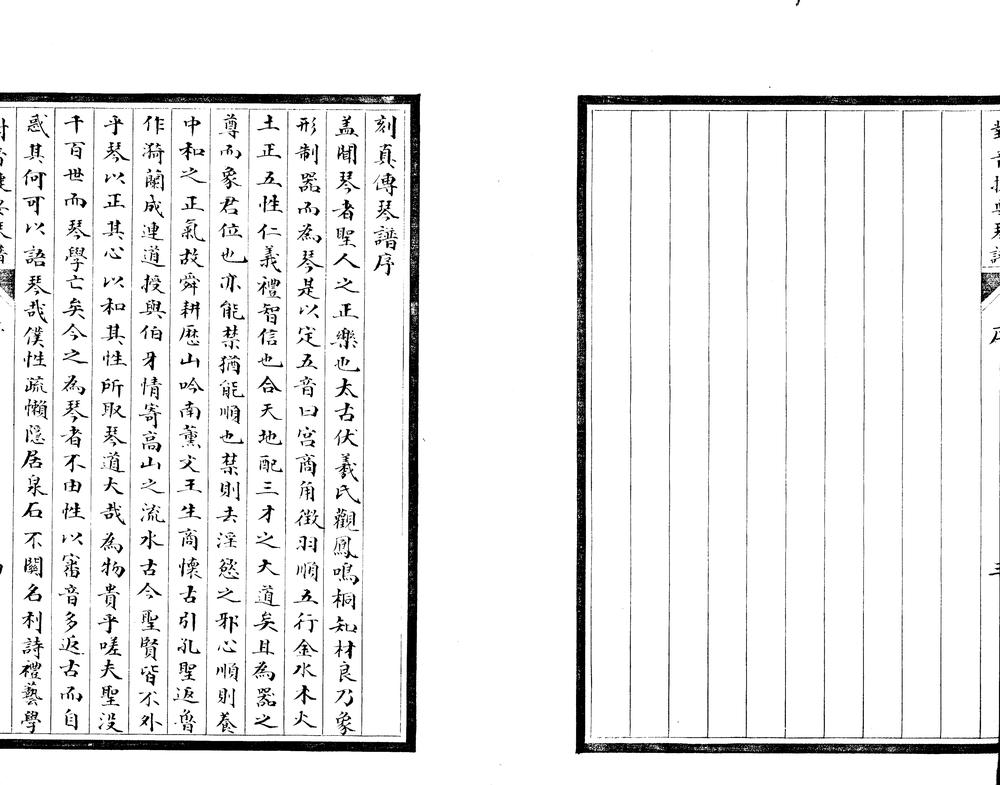 刻真傳琴譜序
盖聞琴者聖人之正樂也太古伏羲氏觀鳳鳴桐知材良乃象
形制器而為琴是以定五音曰宮商角徵羽順五行金水木火
土正五性仁義禮智信也合天地配三才之大道矣且為器之
尊而象君位也亦能禁猶能順也禁則去淫慾之邪心順則養
中和之正氣故舜耕厯山吟南薰文王生商懷古引孔聖返魯
作漪蘭成連道授與伯牙情寄高山之流水古今聖賢皆不外
乎琴以正其心以和其性所取琴道大哉為物貴乎嗟夫聖没
千百世而琴學亡矣今之為琴者不由性以審音多返古而自
惑其何可以語琴哉僕性疏懶隱居泉石不關名利詩禮藝學